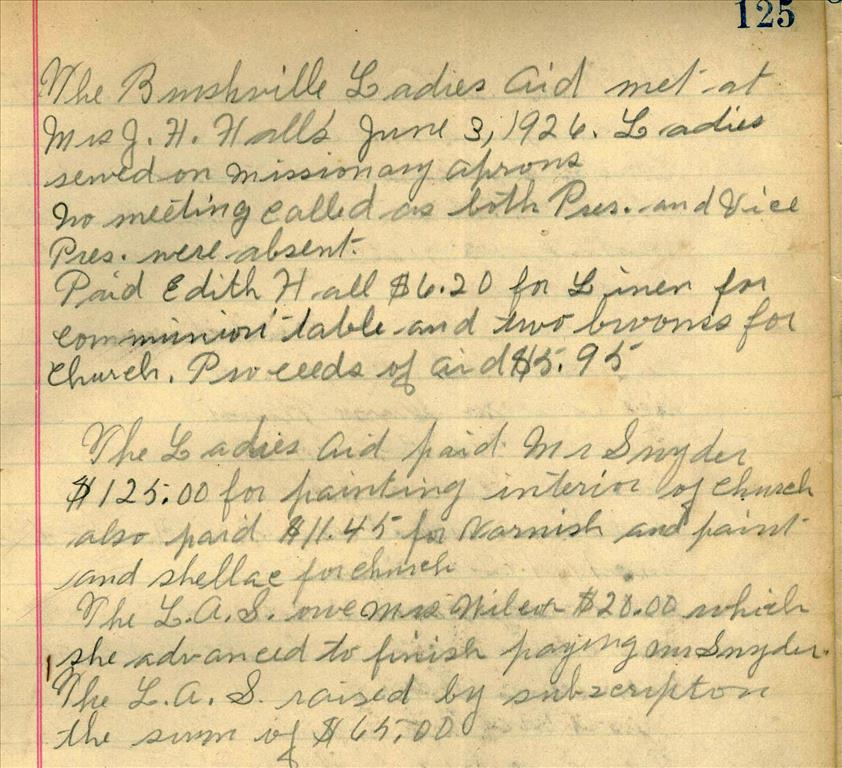 125
The Brushville Ladies Aid met at
Mrs J. H. Hall's June 3, 1926. Ladies
sewed on missionary aprons
No meeting called as both Pres. and Vice
Pres. were absent.
Paid Edith Hall $6.20 for Linen for
communion table and two brooms for
church. Proceeds of aid $5.95
The Ladies Aid paid Mr Snyder
$125.00 for painting interior of church
also paid $11.45 for Varnish and paint
and shellac for church
The L.A.S. owe Mrs Wilcox $20.00 which
she advanced to finish paying Mr Snyder.
The L.A.S. raised by subscripton
the sum of $65.00